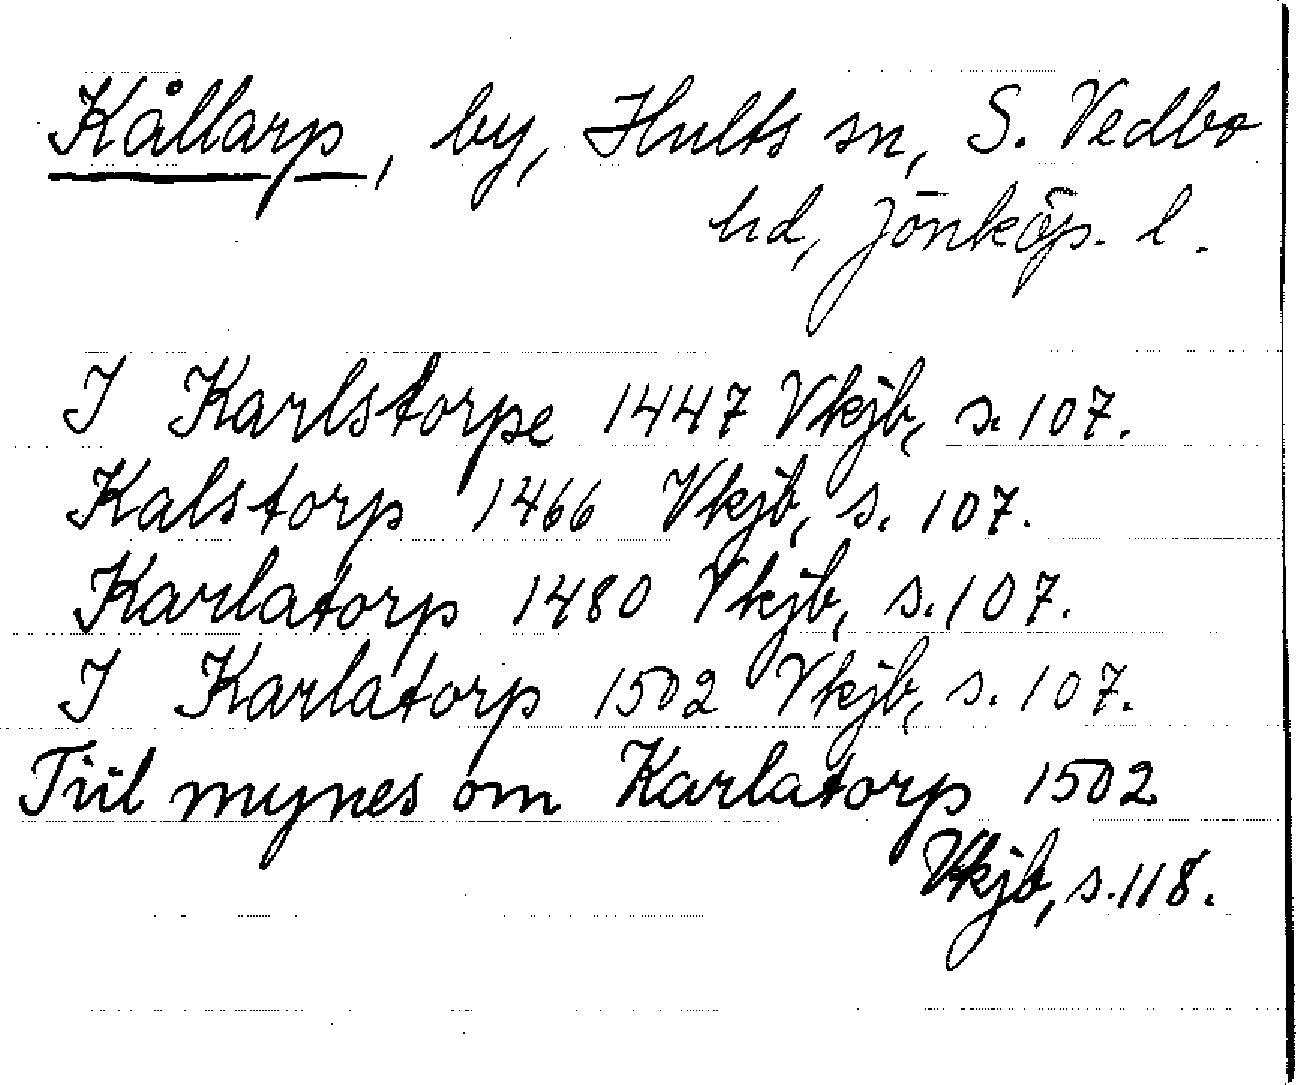 Kållarp, by, Hults sn, S. Vedbo
hd, Jönköp. l.
I Karlstorpe 1447 Vkjb, s. 107.
Kalstorp 1466 Vkjb, s. 107.
Karlatorp 1480 Vkjb, s. 107.
I Karlatorp 1502 Vkjb, s. 107.
Tiil mynes om Karlatorp 1502
Vkjb, s. 118.